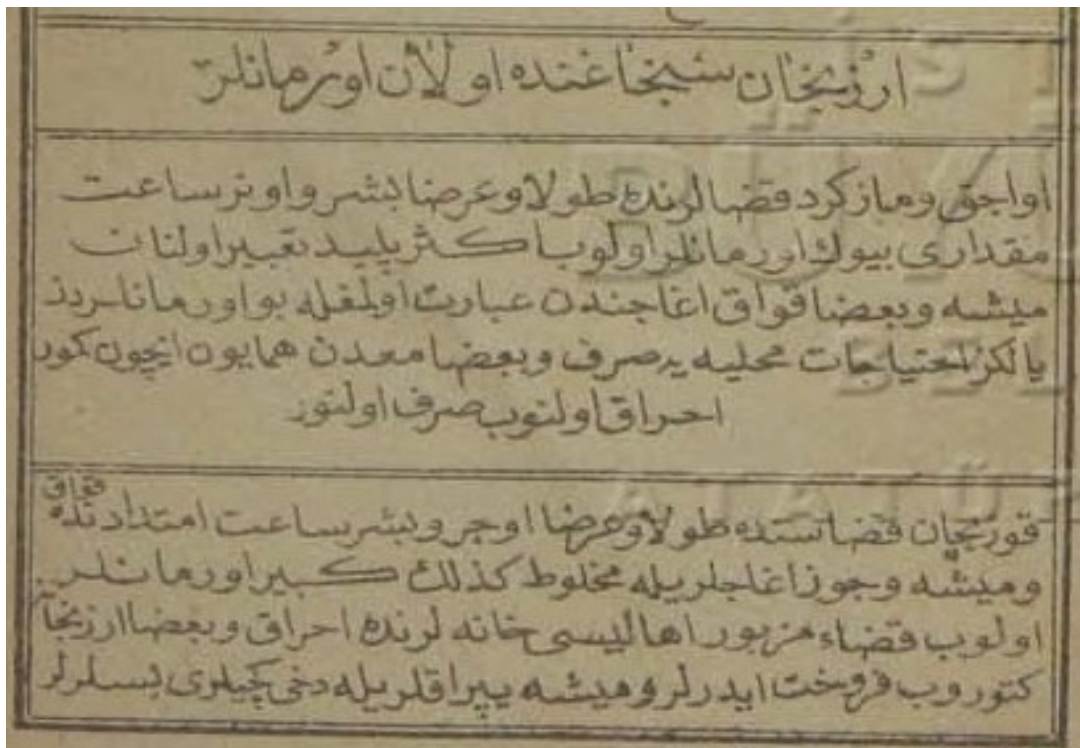 ارزنجان سنجاغنده اولان اورمانلر
اواجق ومازكرد قضالرنده طولا وعرضا بشر واونر ساعت
مقدارى بيوك اورمانلر اولوب اكثر پليد تعبير اولنان
ميشه وبعضا قواق اغاجندن عبارت اولمغله بو اورمانلردن
يالكز احتياجات محليه يه صرف وبعضا معدن همايون ايچون كمور
احراق اولنوب صرف اولنور
قوزيجان قضاسنده طولا وعرضا اوچر وبشر ساعت امتدادنده قواق
وميشه وجوز اغاجلريله مخلوط كذلك كبير اورمانلر
اولوب قضاء مزبور اهاليسى خانه لرنده احراق وبعضا ارزنجانه
كتوروب فروخت ايدرلر وميشه يپراقلريله دخى كچيلرى بسلرلر